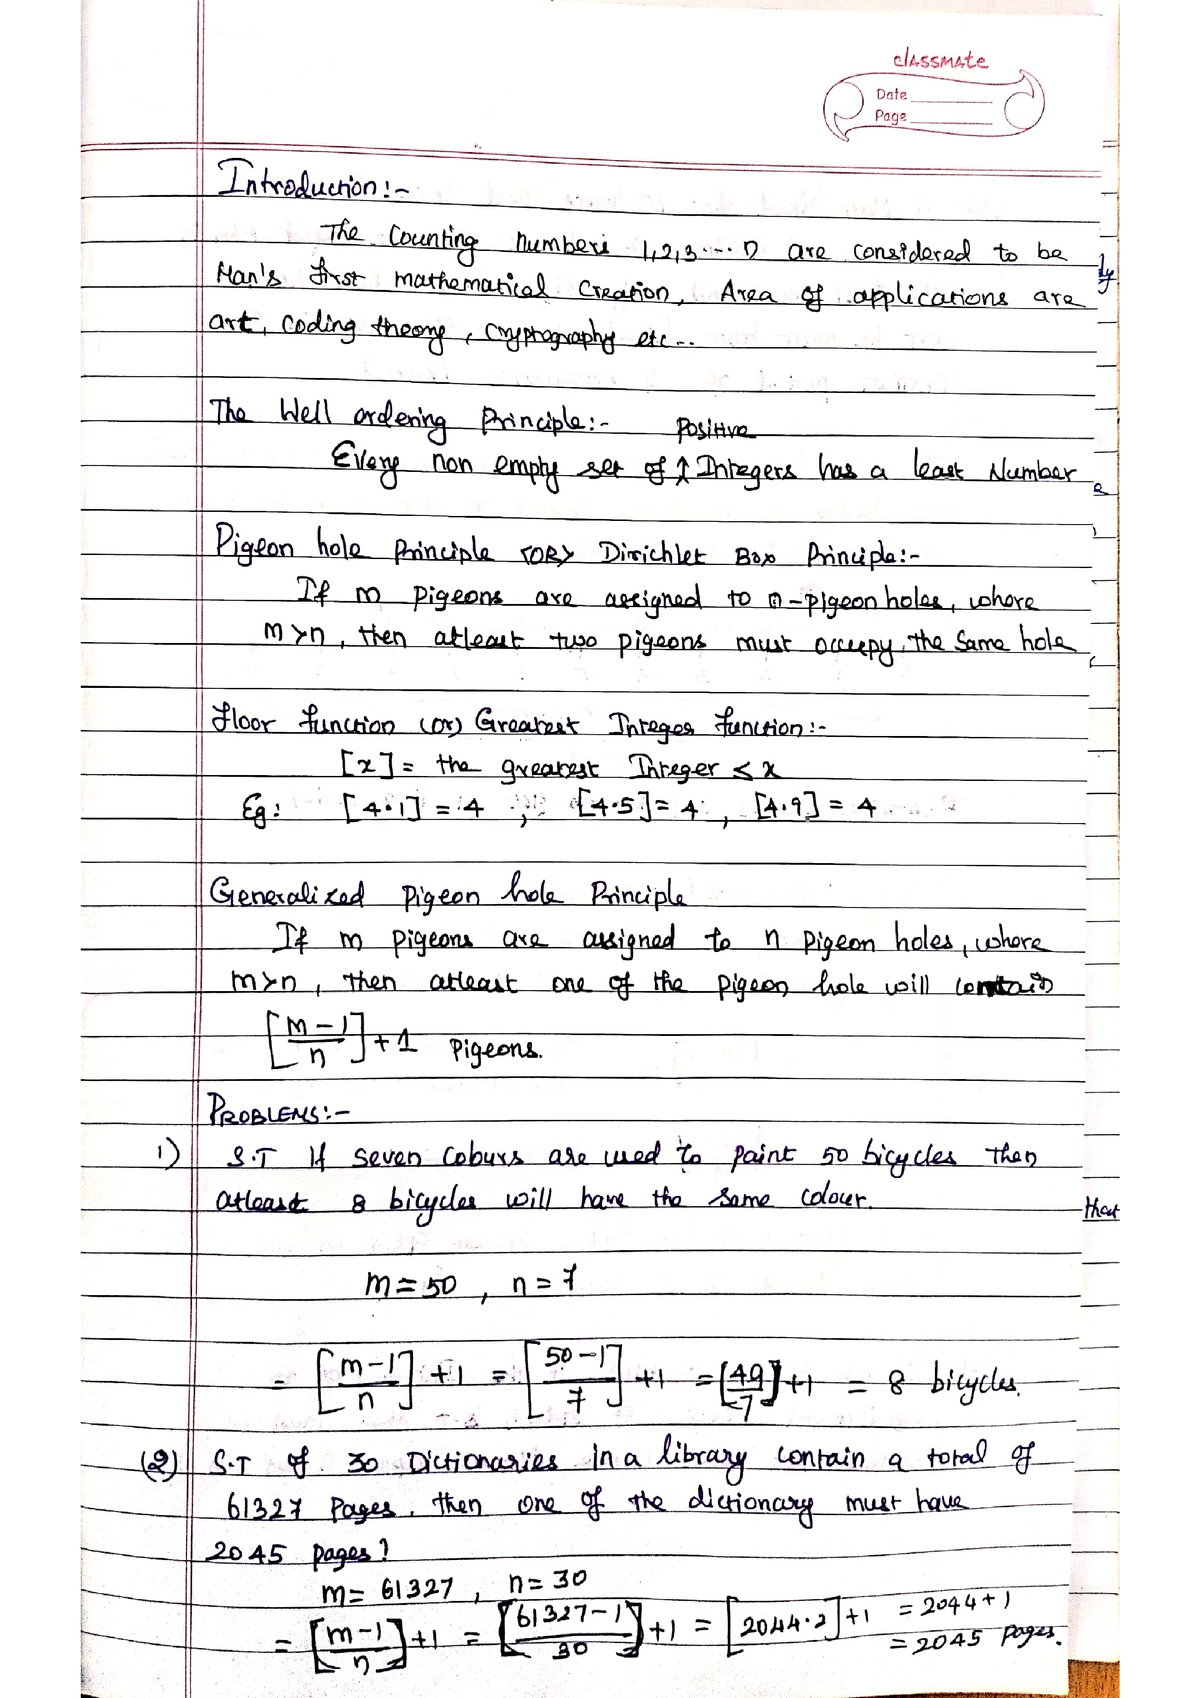 classmate
Date
Page
Introduction:-
The Counting numbers 1,2,3....n are considered to be
Man's first mathematical Creation, Area of applications are
art, coding theory, cryptography etc...
The Well ordering Principle:-
Positive
Every non empty set of ↑ Integers has a least Number
Pigeon hole Principle <OR> Dirichlet Box Principle:-
If m pigeons are assigned to n-pigeon holes, where
m>n, then atleast two pigeons must occupy the same hole
Floor function (or) Greatest Integer function:-
[x] = the greatest Integer ≤ x
Eg: [4.1] = 4, [4.5] = 4, [4.9] = 4
Generalized Pigeon hole Principle
If m pigeons are assigned to n pigeon holes, where
m>n, then atleast one of the pigeon hole will contain
[m-1/n]+1 Pigeons.
PROBLEMS:-
1) S.T If seven colours are used to paint 50 bicycles then
atleast 8 bicycles will have the same colour.
that
m=50, n=7
= [m-1/n]+1 = [50-1/7]+1 = [49/7]+1 = 8 bicycles.
(2) S.T if 30 Dictionaries in a library contain a total of
61327 Pages, then one of the dictionary must have
2045 pages?
m= 61327, n= 30
= [m-1/n]+1 = [61327-1/30]+1 = [2044.2]+1 = 2044+1
= 2045 pages.